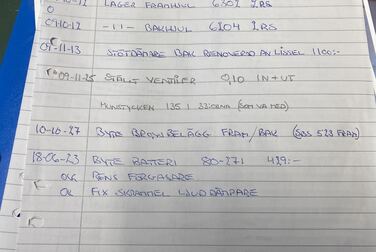 LAGER FRAMHJUL 6302 2RS
09-10-12 -11- BAKHJUL 6204 2RS
09-11-13 STÖTDÄMPARE BAK RENOVERAD AV LISSEL 1100:-
09-11-25 STÄLLT VENTILER 0,10 IN+UT
MUNSTYCKEN 135 I (SOM VA MED)
10-10-27 BYTE BROMSBELÄGG FRAM/BAK (SBS 523 FRAM)
18-06-23 BYTE BATTERI 80-271 429:-
OK RENS FÖRGASARE
OK FIX SKRAMMEL LJUDDÄMPARE